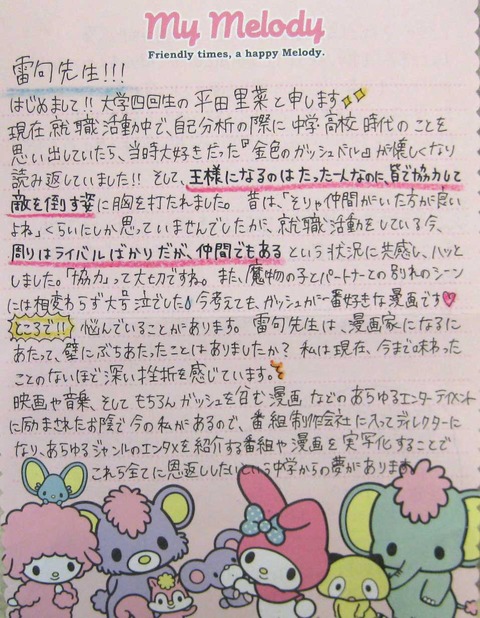 My Melody
Friendly times, a happy Melody.
雷句先生!!!
はじめまして!! 大学四回生の平田里菜と申します
現在就職活動中で、自己分析の際に中学高校時代のことを
思い出していたら、当時大好きだった『金色のガッシュベル』が懐しくなり
読み返していました!! そして、王様になるのはたった一人なのに、皆で協力して
敵を倒す姿に胸を打たれました。昔は、「そりゃ仲間がいた方が良い
よね」くらいにしか思っていませんでしたが、就職活動をしている今、
周りはライバルばかりだが、仲間でもあるという状況に共感し、ハッと
しました。「協力」って大切ですね。また、魔物の子とパートナーとの別れのシーン
には相変わらず大号泣でした 今考えても、ガッシュが一番好きな漫画です
ところで!! 悩んでいることがあります。雷句先生は、漫画家になるに
あたって、壁にぶちあたったことはありましたか? 私は現在、今まで味わった
ことのないほど深い挫折を感じています。
映画や音楽、そしてもちろんガッシュを含む漫画などのあらゆるエンターテイメント
に励まされたお陰で今の私があるので、番組制作会社に入ってディレクターに
なり、あらゆるジャンルのエンタメを紹介する番組や漫画を実写化することで
これら全てに恩返ししたいという中学からの夢があります